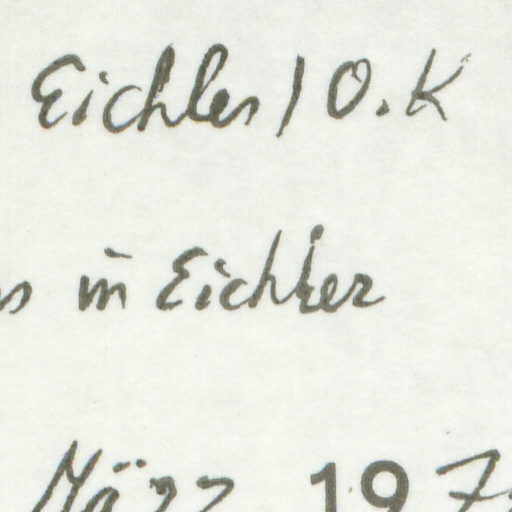 Eichler / O.K
in Eichler
März 197